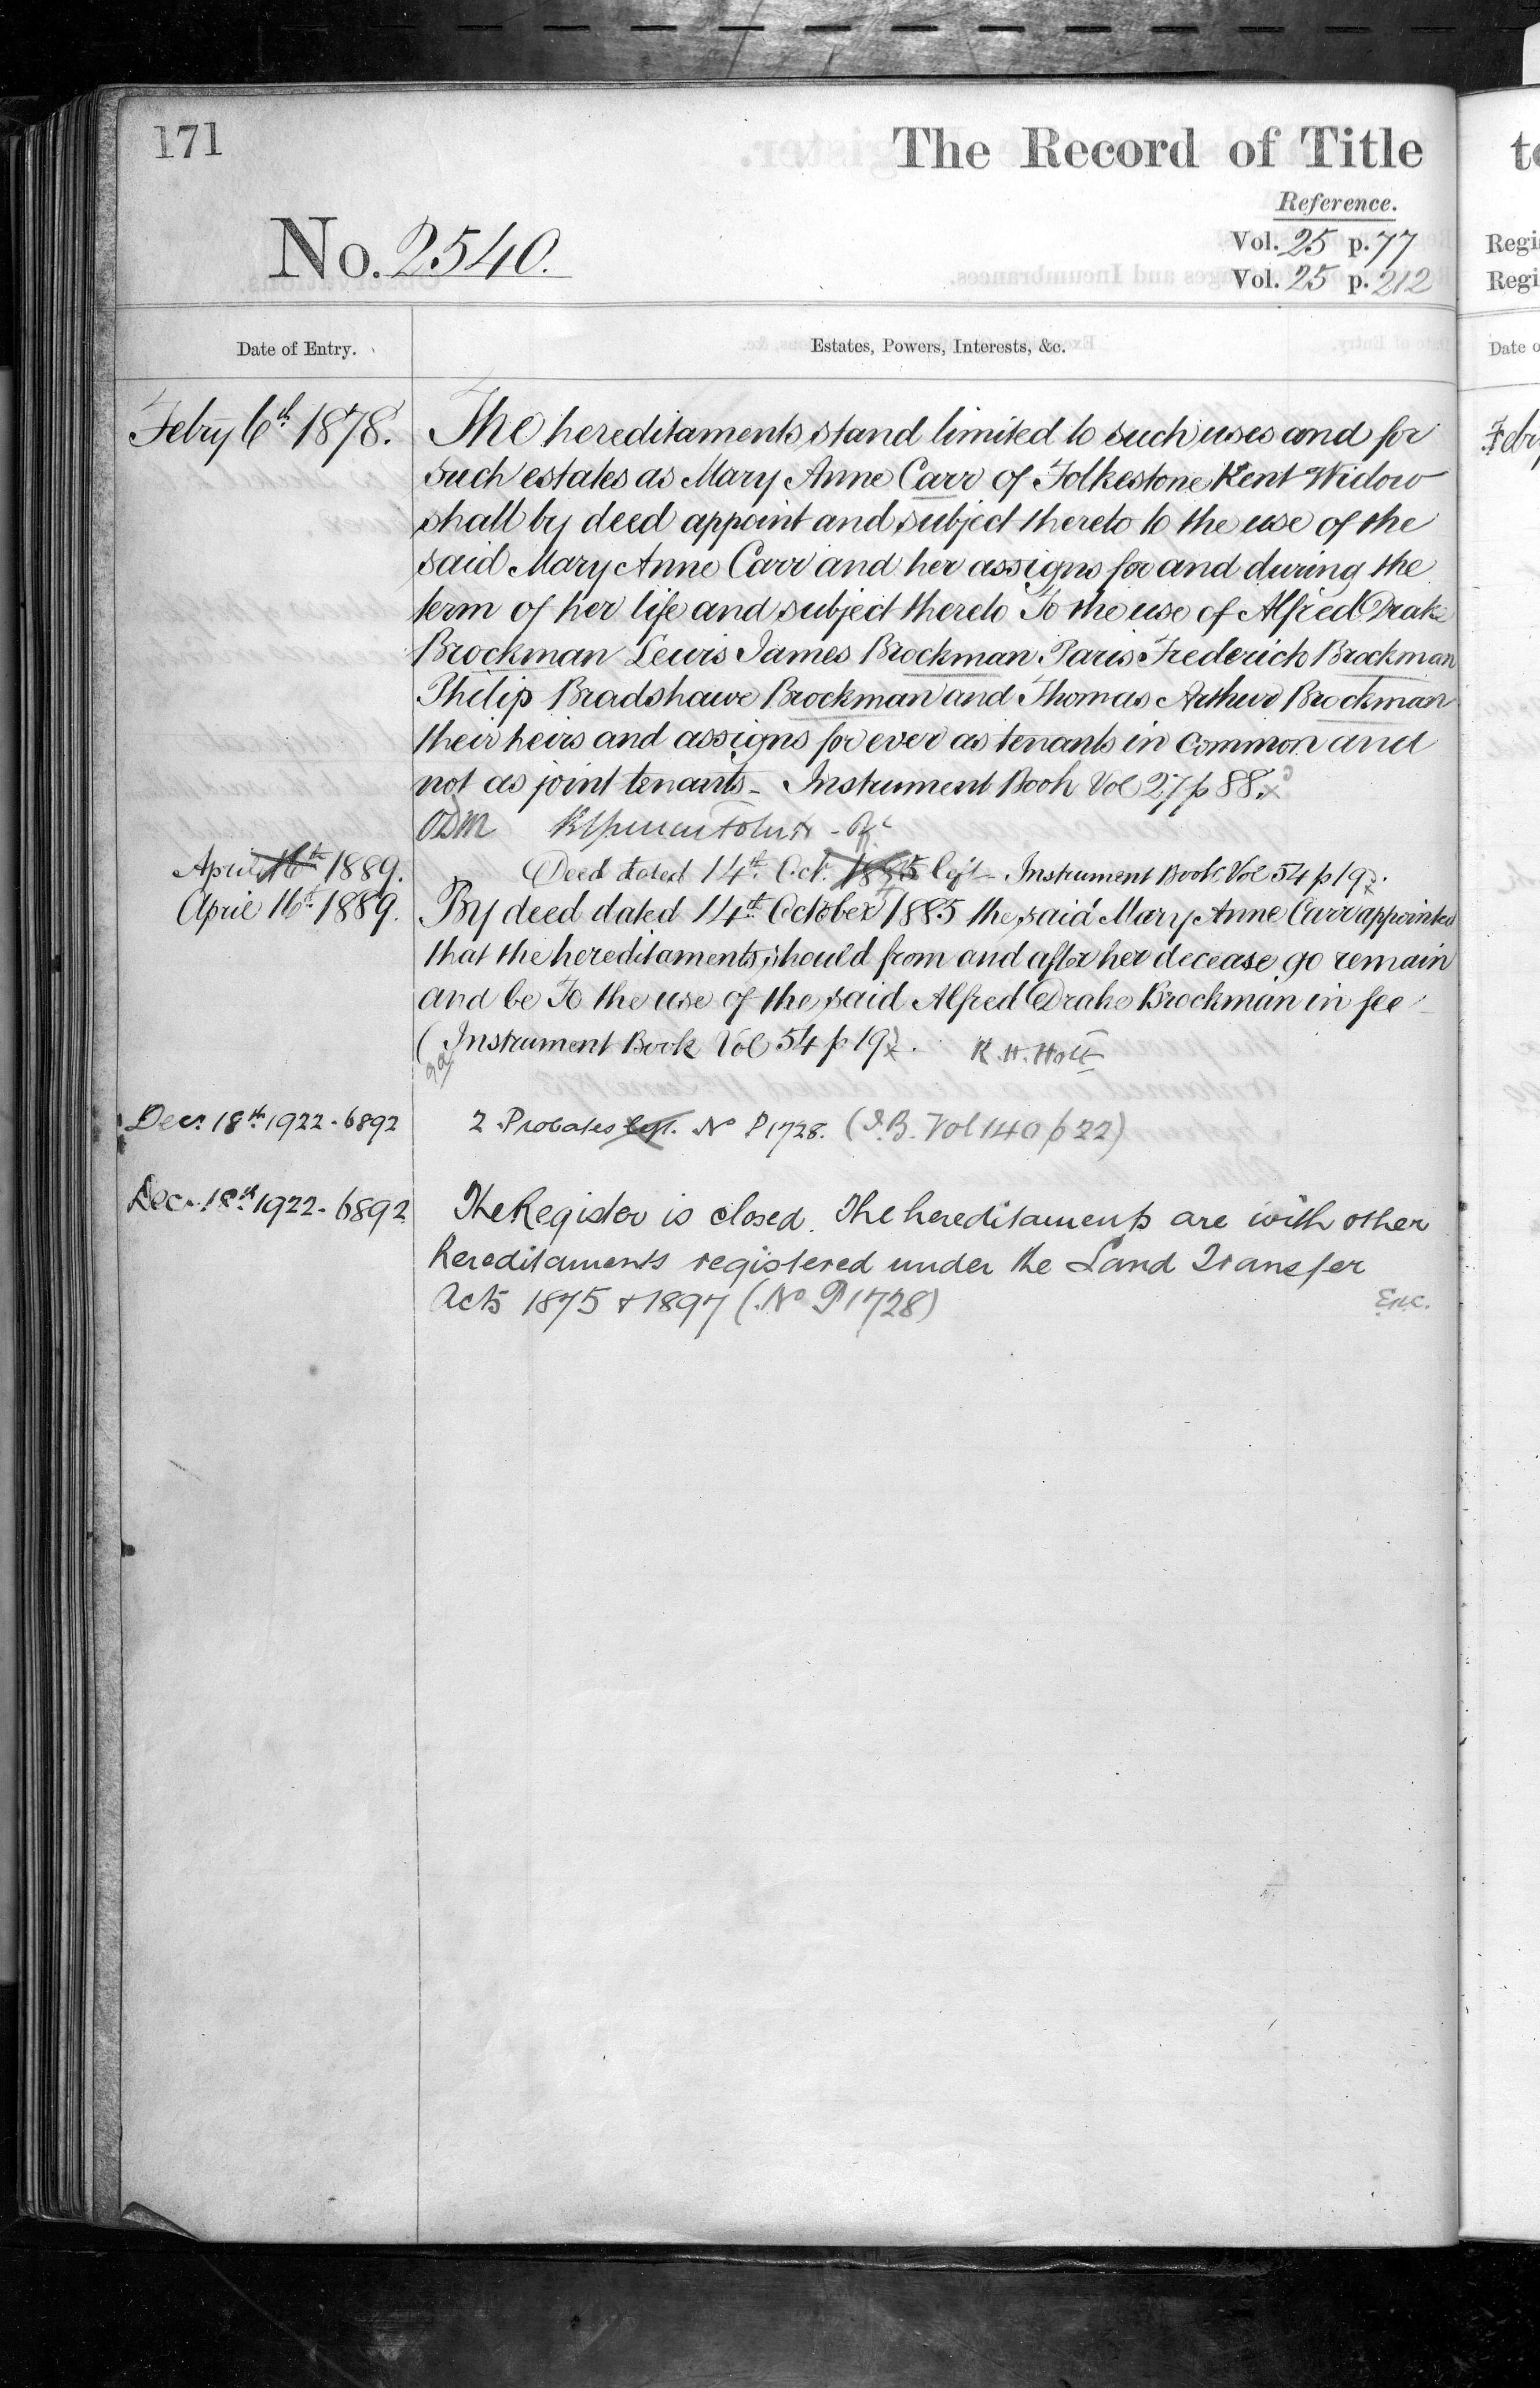 171
The Record of Title
Reference.
No. 2540.
Vol. 25 p. 77
Vol. 25 p. 212
Date of Entry.
Estates, Powers, Interests, &c.
Febry 6th 1878.
The hereditaments stand limited to such uses and for
such estates as Mary Anne Carr of Folkestone Kent Widow
shall by deed appoint and subject thereto to the use of the
said Mary Anne Carr and her assigns for and during the
term of her life and subject thereto To the use of Alfred Drake
Brockman Lewis James Brockman Paris Frederick Brockman
Philip Bradshawe Brockman and Thomas Arthur Brockman
their heirs and assigns for ever as tenants in common and
not as joint tenants - Instrument Book Vol 27 p 88.
ODM
April 16th 1889.
Deed dated 14th Oct. 1885 left - Instrument Book Vol 54 p 197.
April 16th 1889.
By deed dated 14th October 1885 the said Mary Anne Carr appointed
that the hereditaments should from and after her decease go remain
and be To the use of the said Alfred Drake Brockman in fee
(Instrument Book Vol 54 p 197. R. H. Holt
Decr 18th 1922 - 6892
2 Probates left. No P1728. (I.B. Vol 140 p 22)
Decr 18th 1922 - 6892
The Register is closed. The hereditaments are with other
hereditaments registered under the Land Transfer
Acts 1875 & 1897 (No P1728)
Enc.
to
Regi
Regi
Date o
Febr